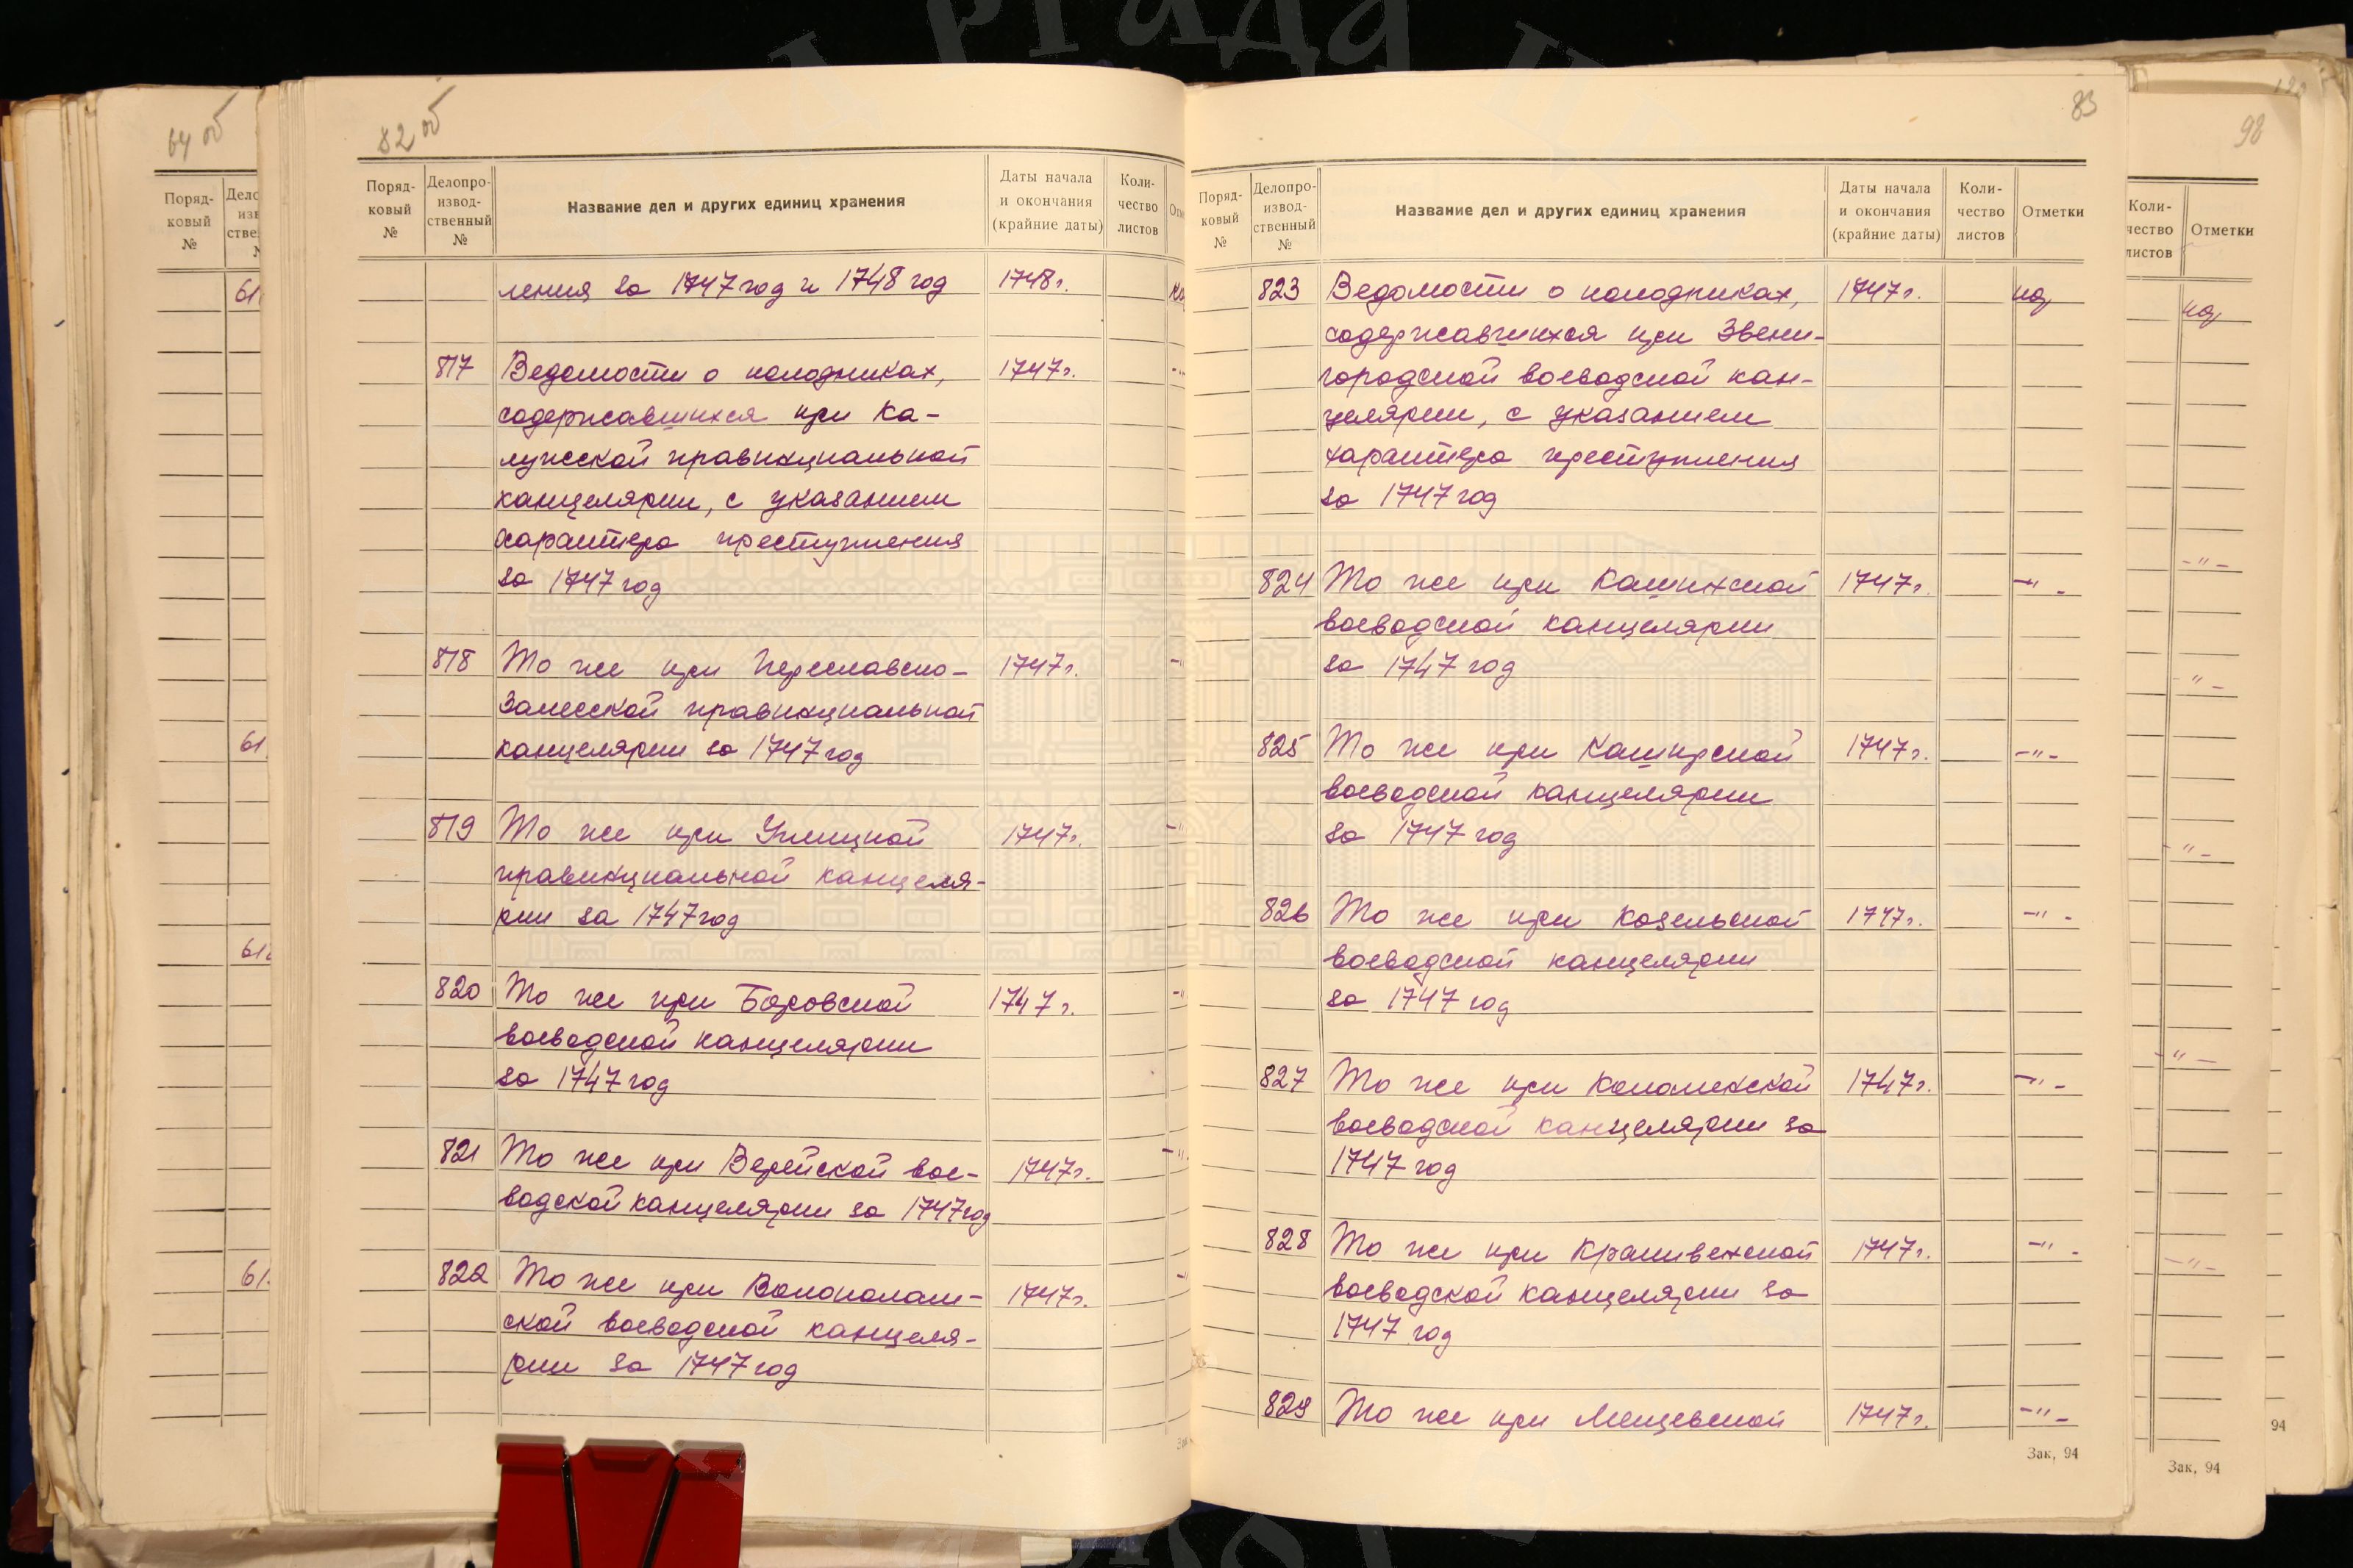 64 об
Поряд-
ковый
№
61
61
61
61
82 об
Поряд-
ковый
№
Делопро-
извод-
ственный
№
Название дел и других единиц хранения
Даты начала
и окончания
(крайние даты)
Коли-
чество
листов
ления за 1747 год и 1748 год 1748 г.
817 Ведомости о колодниках, 1747 г.
содержавшихся при Ка-
лужской провинциальной
канцелярии, с указанием
характера преступления
за 1747 год
818 То же при Переславско- 1747 г.
Залесской провинциальной
канцелярии за 1747 год
819 То же при Углицкой 1747 г.
провинциальной канцеля-
рии за 1747 год
820 То же при Боровской 1747 г.
воеводской канцелярии
за 1747 год
821 То же при Верейской вое- 1747 г.
водской канцелярии за 1747 год
822 То же при Волоколам- 1747 г.
ской воеводской канцеля-
рии за 1747 год
83
Поряд-
ковый
№
Делопро-
извод-
ственный
№
Название дел и других единиц хранения
Даты начала
и окончания
(крайние даты)
Коли-
чество
листов
Отметки
823 Ведомости о колодниках, 1747 г.
содержавшихся при Звени-
городской воеводской кан-
целярии, с указанием
характера преступления
за 1747 год
824 То же при Кашинской 1747 г. -"-
воеводской канцелярии
за 1747 год
825 То же при Каширской 1747 г. -"-
воеводской канцелярии
за 1747 год
826 То же при Козельской 1747 г. -"-
воеводской канцелярии
за 1747 год
827 То же при Коломенской 1747 г. -"-
воеводской канцелярии за
1747 год
828 То же при Крапивенской 1747 г. -"-
воеводской канцелярии за
1747 год
829 То же при Мещевской 1747 г. -"-
Зак. 94
98
Коли-
чество
листов
Отметки
-"-
-"-
-"-
-"-
-"-
Зак. 94
94